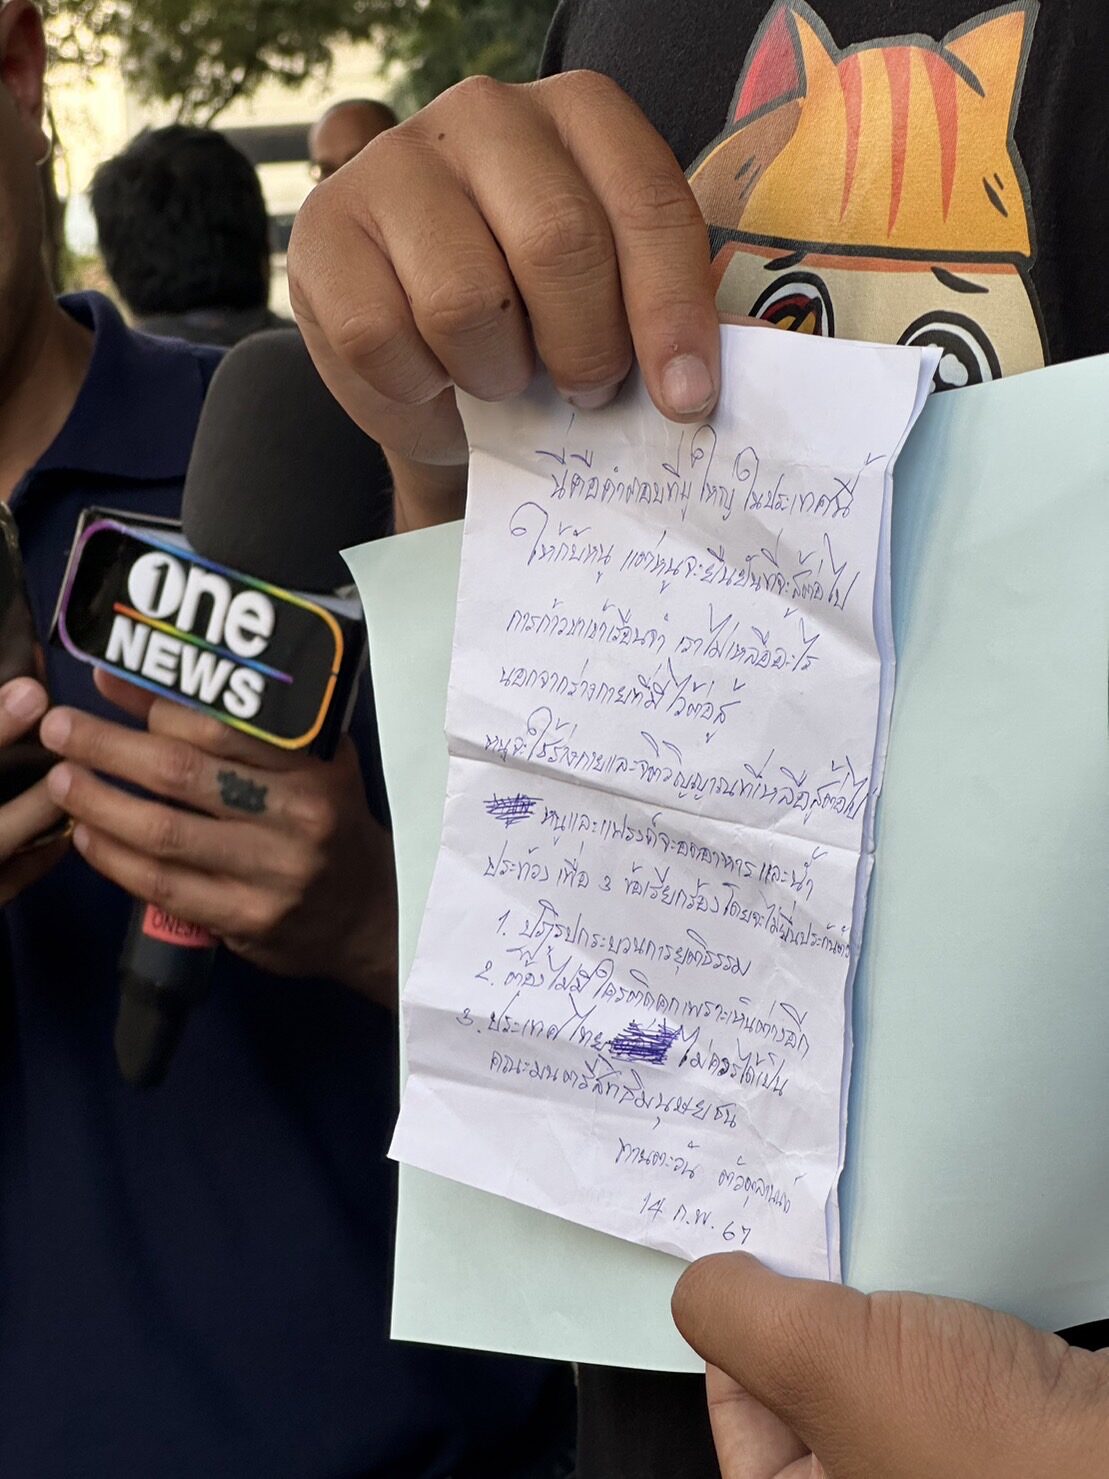 นี่คือคำตอบที่ผู้ใหญ่ในประเทศนี้
ให้กับหนู แต่หนูจะยืนยันที่จะสู้ต่อไป
การก้าวขาเข้าเรือนจำ เราไม่เหลืออะไร
นอกจากร่างกายที่มีไว้ต่อสู้
หนูจะใช้ร่างกายและจิตวิญญาณที่เหลือสู้ต่อไป
หนูและแฟรงค์จะอดอาหารและน้ำ
ประท้วง เพื่อ 3 ข้อเรียกร้อง โดยจะไม่ยื่นประกันตัว
1. ปฏิรูปกระบวนการยุติธรรม
2. ต้องไม่มีใครติดคุกเพราะเห็นต่างอีก
3. ประเทศไทย ไม่ควรได้เป็น
คณะมนตรีสิทธิมนุษยชน
ทานตะวัน ตัวตุลานนท์
14 ก.พ. 67
one
NEWS
ONE31